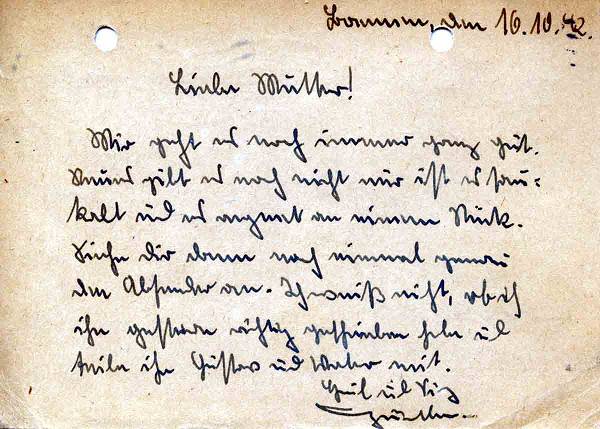 den 16.10.42.
Liebe Mutter!
Mir geht es noch immer ganz gut.
Neues gibt es noch nicht nur ist es sau-
kalt und es regnet an einem Stück.
Siehe dir dann noch einmal genau
den Absender an. Ich weiß nicht, ob ich
ihn gestern richtig geschrieben habe und
teile ihn Gustav und Vater mit.
Heil und Sieg
Günther.